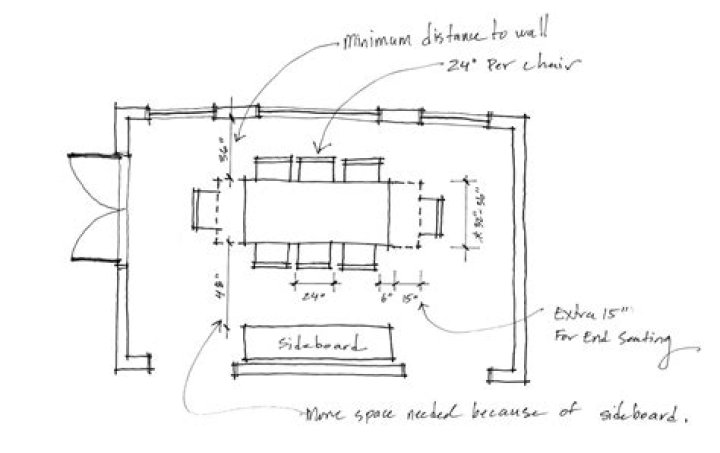 Minimum distance to wall
24" Per chair
36"
* 32"-36"
48"
24"
6"
15"
Extra 15"
For End Seating
Sideboard
More space needed because of sideboard.